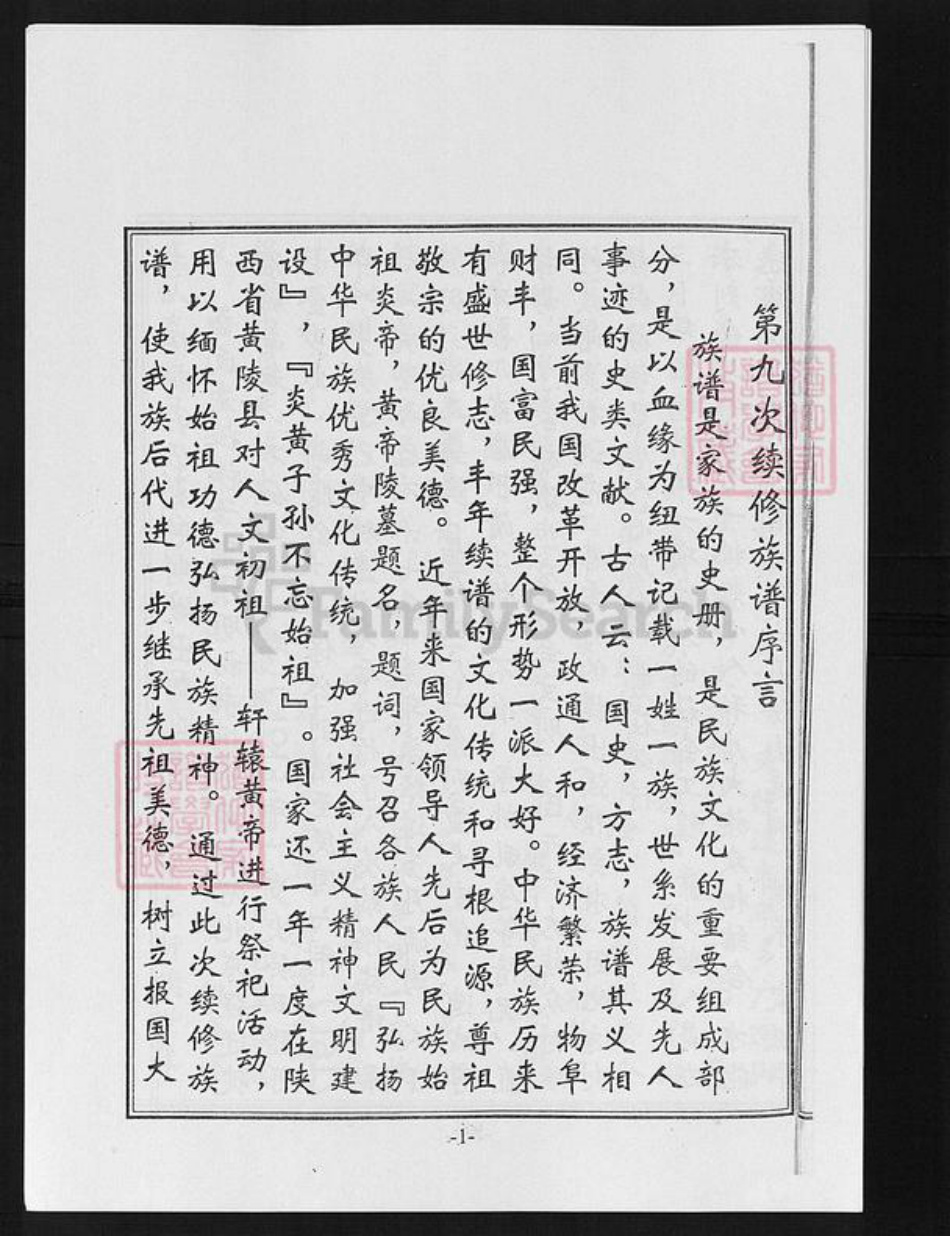 第九次续修族谱序言
族谱是家族的史册，是民族文化的重要组成部
分，是以血缘为纽带记载一姓一族，世系发展及先人
事迹的史类文献。古人云：国史，方志，族谱其义相
同。当前我国改革开放，政通人和，经济繁荣，物阜
财丰，国富民强，整个形势一派大好。中华民族历来
有盛世修志，丰年续谱的文化传统和寻根追源，尊祖
敬宗的优良美德。近年来国家领导人先后为民族始
祖炎帝，黄帝陵墓题名，题词，号召各族人民『弘扬
中华民族优秀文化传统，加强社会主义精神文明建
设』，『炎黄子孙不忘始祖』。国家还一年一度在陕
西省黄陵县对人文初祖——轩辕黄帝进行祭祀活动，
用以缅怀始祖功德弘扬民族精神。通过此次续修族
谱，使我族后代进一步继承先祖美德，树立报国大
-1-
FamilySearch